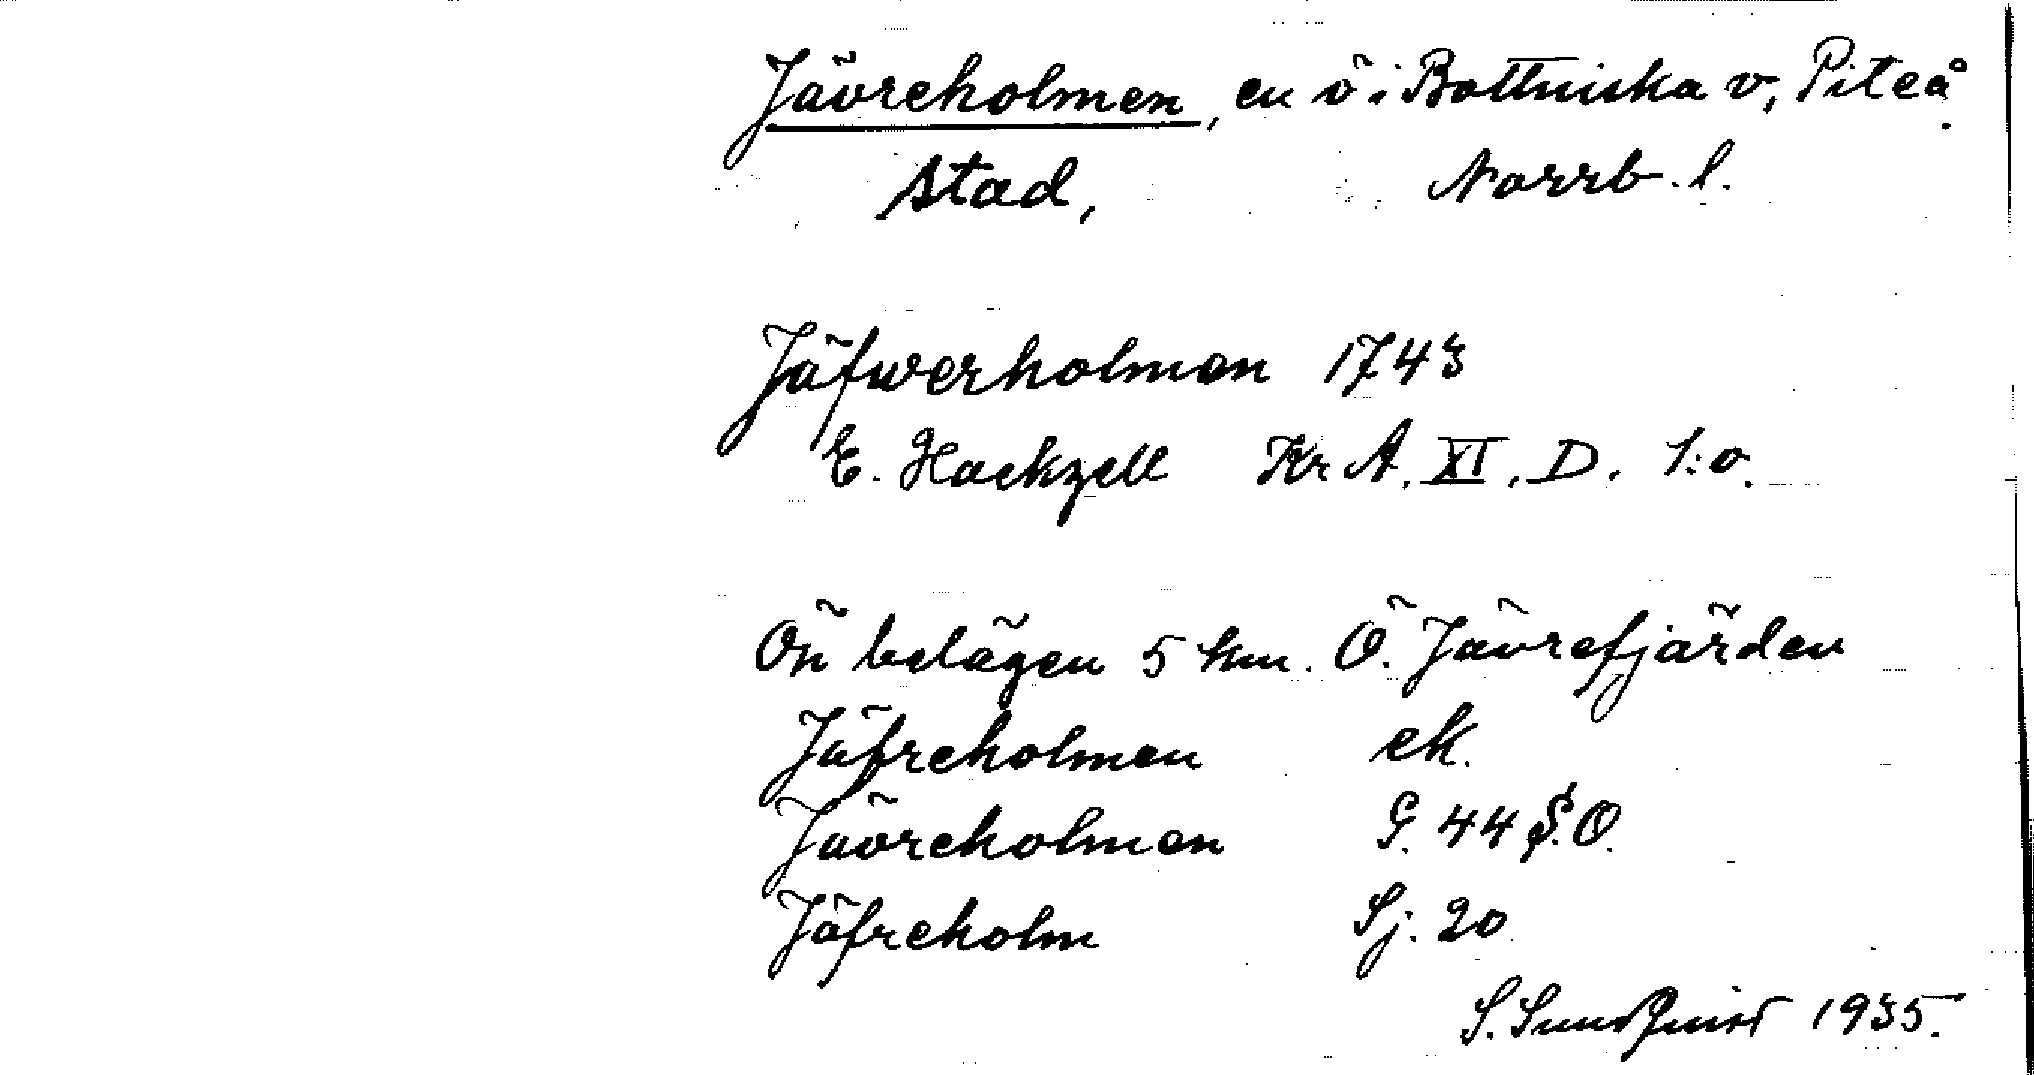 Jävreholmen, en ö i Bottniska v, Piteå.
stad, Norrb. l.
Jäfwerholmen 1743
E. Hackzell Kr A. XI. D. 1:o.
Ön belägen 5 km. Ö. Jävrefjärden
Jäfreholmen ek.
Jävreholmen G. 44 S.O.
Jäfreholm Sj. 20
S. Sundquist 1935.